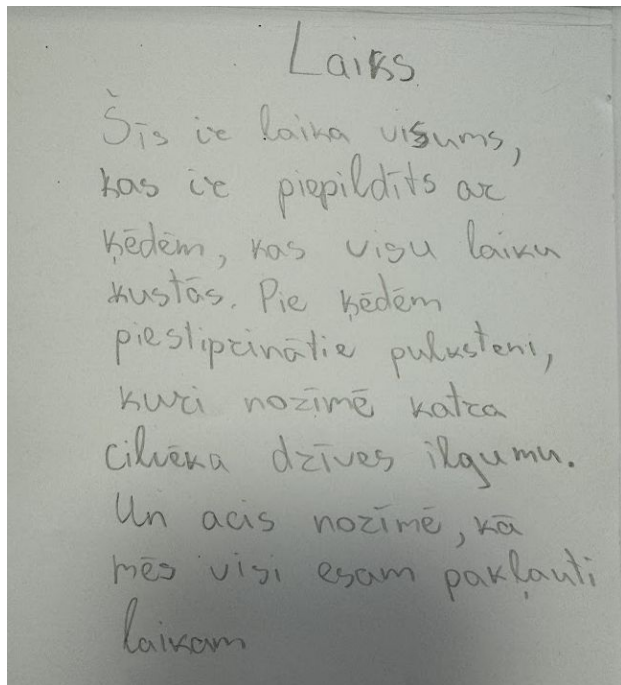 Laiks
Šīs ir laika visums,
kas ir piepildīts ar
ķēdēm, kas visu laiku
kustās. Pie ķēdēm
piestiprinātie pulksteni,
kuri nozīmē katra
cilvēka dzīves ilgumu.
Un acis nozīmē, kā
mēs visi esam pakļauti
laikam